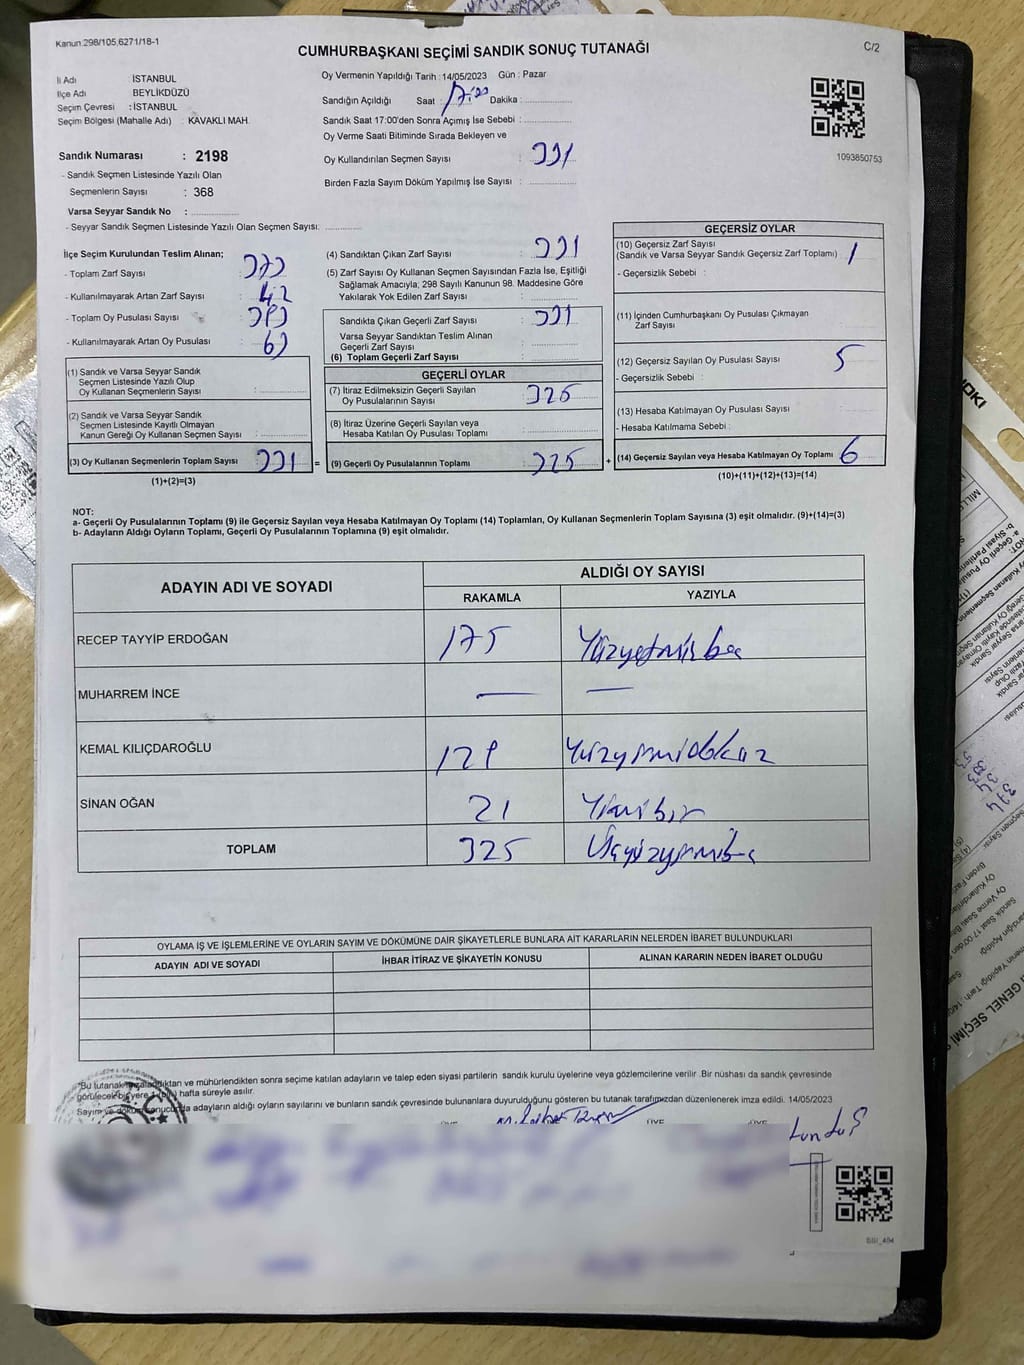 Kanun.298/105,6271/18-1
C/2
CUMHURBAŞKANI SEÇİMİ SANDIK SONUÇ TUTANAĞI
İli Adı : İSTANBUL
İlçe Adı : BEYLİKDÜZÜ
Seçim Çevresi : İSTANBUL
Seçim Bölgesi (Mahalle Adı) : KAVAKLI MAH.
Sandık Numarası : 2198
- Sandık Seçmen Listesinde Yazılı Olan
Seçmenlerin Sayısı : 368
Varsa Seyyar Sandık No :
- Seyyar Sandık Seçmen Listesinde Yazılı Olan Seçmen Sayısı:
Oy Vermenin Yapıldığı Tarih : 14/05/2023 Gün : Pazar
Sandığın Açıldığı Saat : 17:00 Dakika :
Sandık Saat 17:00'den Sonra Açımış İse Sebebi :
Oy Verme Saati Bitiminde Sırada Bekleyen ve
Oy Kullandırılan Seçmen Sayısı : 331
Birden Fazla Sayım Döküm Yapılmış İse Sayısı :
1093850753
İlçe Seçim Kurulundan Teslim Alınan;
- Toplam Zarf Sayısı : 373
- Kullanılmayarak Artan Zarf Sayısı : 42
- Toplam Oy Pusulası Sayısı : 393
- Kullanılmayarak Artan Oy Pusulası : 63
(1) Sandık ve Varsa Seyyar Sandık
Seçmen Listesinde Yazılı Olup
Oy Kullanan Seçmenlerin Sayısı :
(2) Sandık ve Varsa Seyyar Sandık
Seçmen Listesinde Kayıtlı Olmayan
Kanun Gereği Oy Kullanan Seçmen Sayısı :
(3) Oy Kullanan Seçmenlerin Toplam Sayısı : 331 =
(1)+(2)=(3)
(4) Sandıktan Çıkan Zarf Sayısı : 331
(5) Zarf Sayısı Oy Kullanan Seçmen Sayısından Fazla İse, Eşitliği
Sağlamak Amacıyla, 298 Sayılı Kanunun 98. Maddesine Göre
Yakılarak Yok Edilen Zarf Sayısı :
Sandıkta Çıkan Geçerli Zarf Sayısı : 331
Varsa Seyyar Sandıktan Teslim Alınan
Geçerli Zarf Sayısı :
(6) Toplam Geçerli Zarf Sayısı :
GEÇERLİ OYLAR
(7) İtiraz Edilmeksizin Geçerli Sayılan
Oy Pusulalarının Sayısı : 325
(8) İtiraz Üzerine Geçerli Sayılan veya
Hesaba Katılan Oy Pusulası Toplamı :
(9) Geçerli Oy Pusulalarının Toplamı : 325 +
GEÇERSİZ OYLAR
(10) Geçersiz Zarf Sayısı
(Sandık ve Varsa Seyyar Sandık Geçersiz Zarf Toplamı) : 1
- Geçersizlik Sebebi :
(11) İçinden Cumhurbaşkanı Oy Pusulası Çıkmayan
Zarf Sayısı :
(12) Geçersiz Sayılan Oy Pusulası Sayısı : 5
- Geçersizlik Sebebi :
(13) Hesaba Katılmayan Oy Pusulası Sayısı :
- Hesaba Katılmama Sebebi :
(14) Geçersiz Sayılan veya Hesaba Katılmayan Oy Toplamı : 6
(10)+(11)+(12)+(13)=(14)
NOT:
a- Geçerli Oy Pusulalarının Toplamı (9) ile Geçersiz Sayılan veya Hesaba Katılmayan Oy Toplamı (14) Toplamları, Oy Kullanan Seçmenlerin Toplam Sayısına (3) eşit olmalıdır. (9)+(14)=(3)
b- Adayların Aldığı Oyların Toplamı, Geçerli Oy Pusulalarının Toplamına (9) eşit olmalıdır.
ADAYIN ADI VE SOYADI
ALDIĞI OY SAYISI
RAKAMLA YAZIYLA
RECEP TAYYİP ERDOĞAN 175 Yüzyetmişbeş
MUHARREM İNCE — —
KEMAL KILIÇDAROĞLU 129 Yüzyirmidokuz
SİNAN OĞAN 21 Yirmibir
TOPLAM 325 Üçyüzyirmibeş
OYLAMA İŞ VE İŞLEMLERİNE VE OYLARIN SAYIM VE DÖKÜMÜNE DAİR ŞİKAYETLERLE BUNLARA AİT KARARLARIN NELERDEN İBARET BULUNDUKLARI
ADAYIN ADI VE SOYADI İHBAR İTİRAZ VE ŞİKAYETİN KONUSU ALINAN KARARIN NEDEN İBARET OLDUĞU
"Bu tutanak imzalandıktan ve mühürlendikten sonra seçime katılan adayların ve talep eden siyasi partilerin sandık kurulu üyelerine veya gözlemcilerine verilir .Bir nüshası da sandık çevresinde
görülecek bir yere 1 (bir) hafta süreyle asılır.
Sayım ve döküm sonucunda adayların aldığı oyların sayılarını ve bunların sandık çevresinde bulunanlara duyurulduğunu gösteren bu tutanak tarafımızdan düzenlenerek imza edildi. 14/05/2023
ÜYE ÜYE